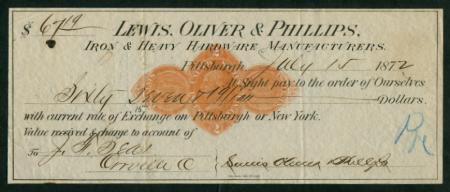 $ 67.19
LEWIS, OLIVER & PHILLIPS,
IRON & HEAVY HARDWARE MANUFACTURERS.
Pittsburgh, July 15 1872
At Sight pay to the order of Ourselves
Sixty Seven & 19/100 Dollars.
with current rate of Exchange on Pittsburgh or New York.
Value received & charge to account of
To J. F. Seas
Orrville O Lewis Oliver Phillips